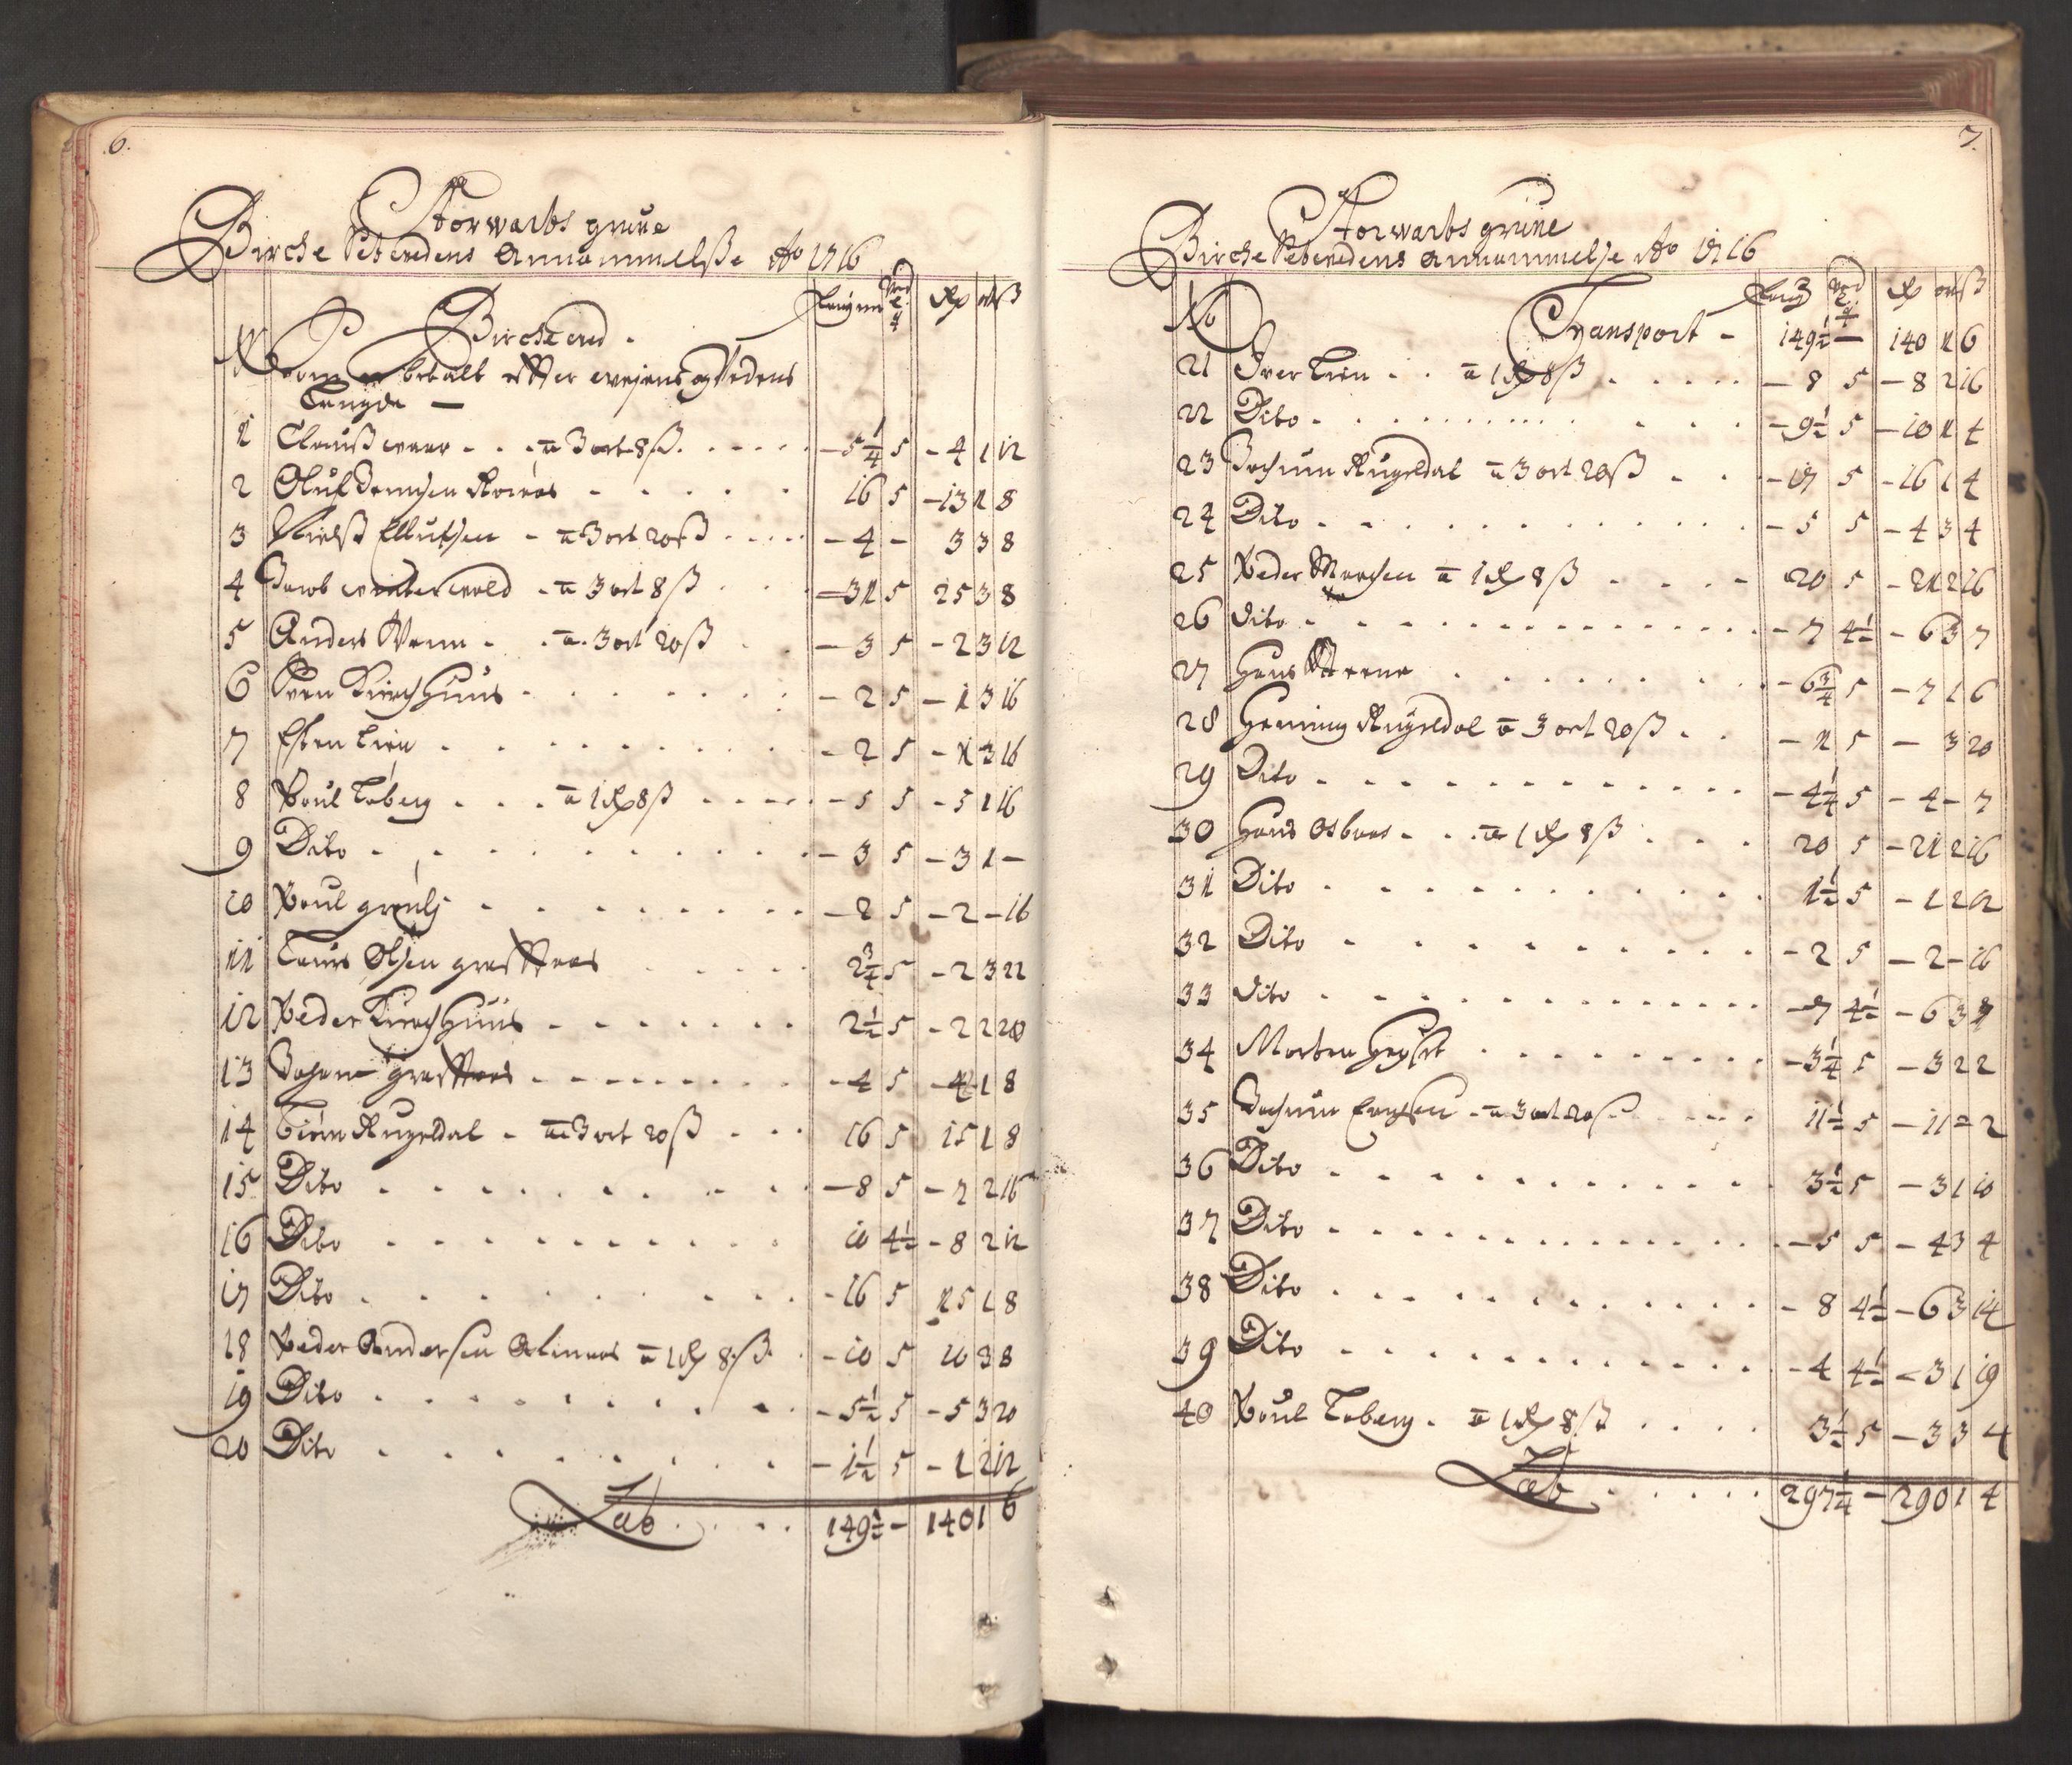 6.
Storwarts grue
Birche Setvedens Annammelsse Ao 1716
Birche ved.
No Som er betalt efter weyens og Vedens
Lengde —
1 Clauss - - a 3 ort 8 ß - 5 1/4 5 - 4 1 12
2 Oluf - - - - 16 5 - 13 1 8
3 Nielss Ellufsen - a 3 ort 20 ß - 4 - 3 3 8
4 Jacob - a 3 ort 8 ß - 31 5 25 3 8
5 Anders - a 3 ort 20 ß - 3 5 - 2 3 12
6 Sven Kirchhuus - - - - 2 5 - 1 3 16
7 Esten Lien - - - - 2 5 - 1 3 16
8 Poul Toberg - - a 1 Rd 8 ß - 5 5 - 5 1 16
9 Dito - - - - 3 5 - 3 1 -
10 Poul - - - - 2 5 - 2 - 16
11 Laurs Olsen - - - 2 3/4 5 - 2 3 22
12 Peder Kirchhuus - - - - 2 1/2 5 - 2 2 20
13 - - - - 4 5 - 4 1 8
14 Biörn Rugeldal - a 3 ort 20 ß - - 16 5 15 1 8
15 Dito - - - - 8 5 - 7 2 16
16 Dito - - - - 10 4 1/2 - 8 2 12
17 Dito - - - - 16 5 15 1 8
18 Peder Andersen Alinaas a 1 Rd 8 ß - 10 5 10 3 8
19 Dito - - - - 5 1/2 5 - 5 3 20
20 Dito - - - - 1 1/2 5 - 1 2 12
Lat. - - 149 1/2 - 140 1 6
7.
Storwarts grue
Birche Setvedens Annammelse Ao 1716
No Transport - 149 1/2 - 140 1 6
21 Iver Lien - - a 1 Rd 8 ß - 8 5 - 8 2 16
22 Dito - - - - 9 1/2 5 - 10 1 4
23 Jochum Rugeldal a 3 ort 20 ß - - 17 5 - 16 1 4
24 Dito - - - - 5 5 - 4 3 4
25 Peder a 1 Rd 8 ß - - 20 5 - 21 2 16
26 Dito - - - - 7 4 1/2 - 6 3 7
27 Hans - - - - 6 3/4 5 - 7 1 6
28 Henning Rugeldal a 3 ort 20 ß - - 1 5 - 3 20
29 Dito - - - - 4 1/4 5 - 4 - 7
30 Hans Osbaas - - a 1 Rd 8 ß - - 20 5 - 21 2 16
31 Dito - - - - 1 1/2 5 - 1 2 12
32 Dito - - - - 2 5 - 2 - 16
33 Dito - - - - 7 4 1/2 - 6 3 7
34 Morten - - - - 3 1/4 5 - 3 2 2
35 Jochum - a 3 ort 20 ß - - 11 1/2 5 - 11 - 2
36 Dito - - - - 3 1/2 5 - 3 1 10
37 Dito - - - - 5 5 - 4 3 4
38 Dito - - - - 8 4 1/2 - 6 3 14
39 Dito - - - - 4 4 1/2 - 3 1 19
40 Poul Toberg - a 1 Rd 8 ß - - 3 1/2 5 - 3 3 4
Lat - - 297 1/4 - 290 1 4